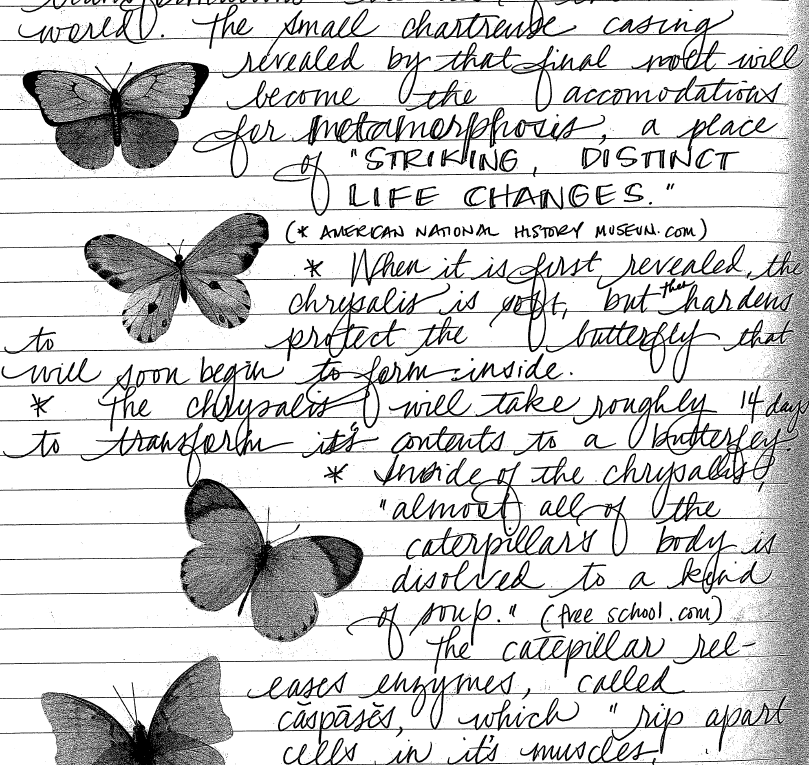 world). The small chartreuse casing
revealed by that final molt will
become the accomodations
for metamorphosis, a place
of "STRIKING, DISTINCT
LIFE CHANGES."
(* AMERICAN NATIONAL HISTORY MUSEUM.com)
* When it is first revealed, the
chrysalis is soft, but then hardens
to protect the butterfly that
will soon begin to form inside.
* The chrysalis will take roughly 14 days
to transform it's contents to a butterfly.
* Inside of the chrysalis,
"almost all of the
caterpillar's body is
disolved to a kind
of soup." (free school.com)
The catepillar rel-
eases enzymes, called
cāspāsēs, which "rip apart
cells in it's muscles,